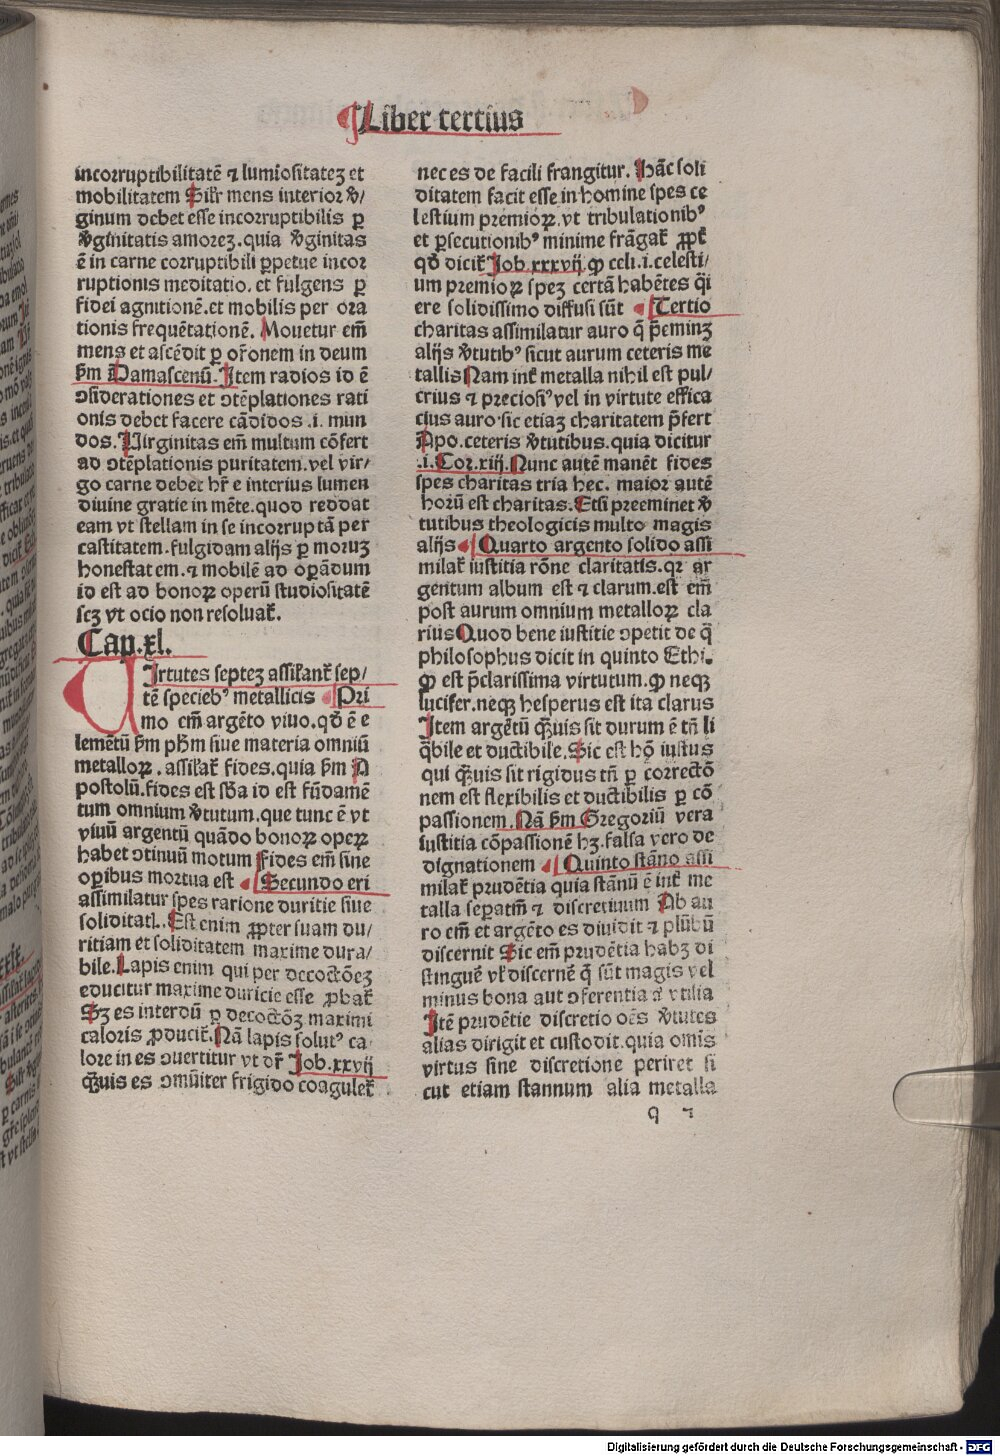 Liber tertius
incorruptibilitatē ⁊ lumiositateʒ et
mobilitatem Silr̄ mens interior v̄/
ginum debet esse incorruptibilis ꝑ
v̄ginitatis amoreʒ.quia v̄ginitas
ē in carne corruptibili ꝑpetue incor
ruptionis meditatio.et fulgens ꝑ
fidei agnitionē.et mobilis per ora
tionis frequētationē.Mouetur em̄
mens et ascēdit ꝑ or̄onem in deum
ẜm Damascenū.Item radios id ē
ↄsiderationes et ↄtēplationes rati
onis debet facere cādidos.i.mun
dos.Virginitas em̄ multum cōfert
ad ↄtēplationis puritatem.vel vir/
go carne debet hr̄e interius lumen
diuine gratie in mēte.quod reddat
eam vt stellam in se incorruptā per
castitatem.fulgidam alijs ꝑ moruʒ
honestatem.⁊ mobilē ad oꝑandum
id est ad bonoꝝ operū studiositatē
scʒ vt ocio non resoluat̄.
Cap.xl.
Virtutes septeʒ assilant̄ sep/
tē specieb⁹ metallicis Pri
mo em̄ argēto viuo.qd̄ ē e
lemētū ẜm ph̄m siue materia omniū
metalloꝝ.assilat̄ fides.quia ẜm A
postolū.fides est sb̄a id est fūdamē
tum omnium v̄tutum.que tunc ē vt
viuū argentū quādo bonoꝝ opeꝝ
habet ↄtinuū motum Fides em̄ sine
oꝑibus mortua est Secundo eri
assimilatur spes ratione duritie siue
soliditatꝭ.Est enim ꝓpter suam du/
ritiam et soliditatem maxime dura/
bile.Lapis enim qui per decoctōeʒ
educitur maxime duricie esse ꝓbat̄
Sʒ es interdū ꝑ decoctōʒ maximi
caloris ꝓducit̄.Nā lapis solut⁹ ca
lore in es ↄuertitur vt dr̄ Job.xxvij
Qʒuis es ↄmūiter frigido coagulet̄
nec es de facili frangitur.Hāc soli
ditatem facit esse in homine spes ce
lestium premioꝝ.vt tribulationib⁹
et ꝑsecutionib⁹ minime frāgat̄ ꝓpt̄
qd̄ dicit̄ Job.xxxvij.ꝙ celi.i.celesti/
um premioꝝ speʒ certā habētes q̄i
ere solidissimo diffusi sūt Tertio
charitas assimilatur auro q̄ p̄eminʒ
alijs v̄tutib⁹ sicut aurum ceteris me
tallis Nam int̄ metalla nihil est pul/
crius ⁊ preciosi⁹ vel in virtute effica
cius auro.sic etiaʒ charitatem p̄fert
Apo.ceteris v̄tutibus.quia dicitur
.i.Coꝛ.xiij.Nunc autē manēt fides
spes charitas tria hec.maior autē
horū est charitas.Etsi preeminet v̄
tutibus theologicis multo magis
alijs Quarto argento solido assi
milat̄ iustitia rōne claritatis.qꝛ ar
gentum album est ⁊ clarum.est em̄
post aurum omnium metalloꝝ cla
rius Quod bene iustitie ↄpetit de q̄
philosophus dicit in quinto Ethi.
ꝙ est p̄clarissima virtutum.ꝙ neqʒ
lucifer.neqʒ hesperus est ita clarus
Item argētū qʒuis sit durum ē tn̄ li
q̄bile et ductibile.Sic est hō iustus
qui qʒuis sit rigidus tn̄ ꝑ correctō
nem est flexibilis et ductibilis ꝑ cō
passionem.Nā ẜm Gregoriū vera
iustitia cōpassionē hʒ.falsa vero de
dignationem Quinto stāno assi
milat̄ prudētia quia stānū ē int̄ me
talla seꝑatm̄ ⁊ discretiuum Ab au
ro em̄ et argēto es diuidit ⁊ plūbū
discernit Sic em̄ prudētia habʒ di
stinguē vl̓ discernē q̄ sūt magis vel
minus bona aut ↄferentia ⁊ vtilia
Itē prudētie discretio oēs v̄tutes
alias dirigit et custodit.quia omīs
virtus sine discretione periret si
cut etiam stannum alia metalla
q ⁊
Digitalisierung gefördert durch die Deutsche Forschungsgemeinschaft - DFG